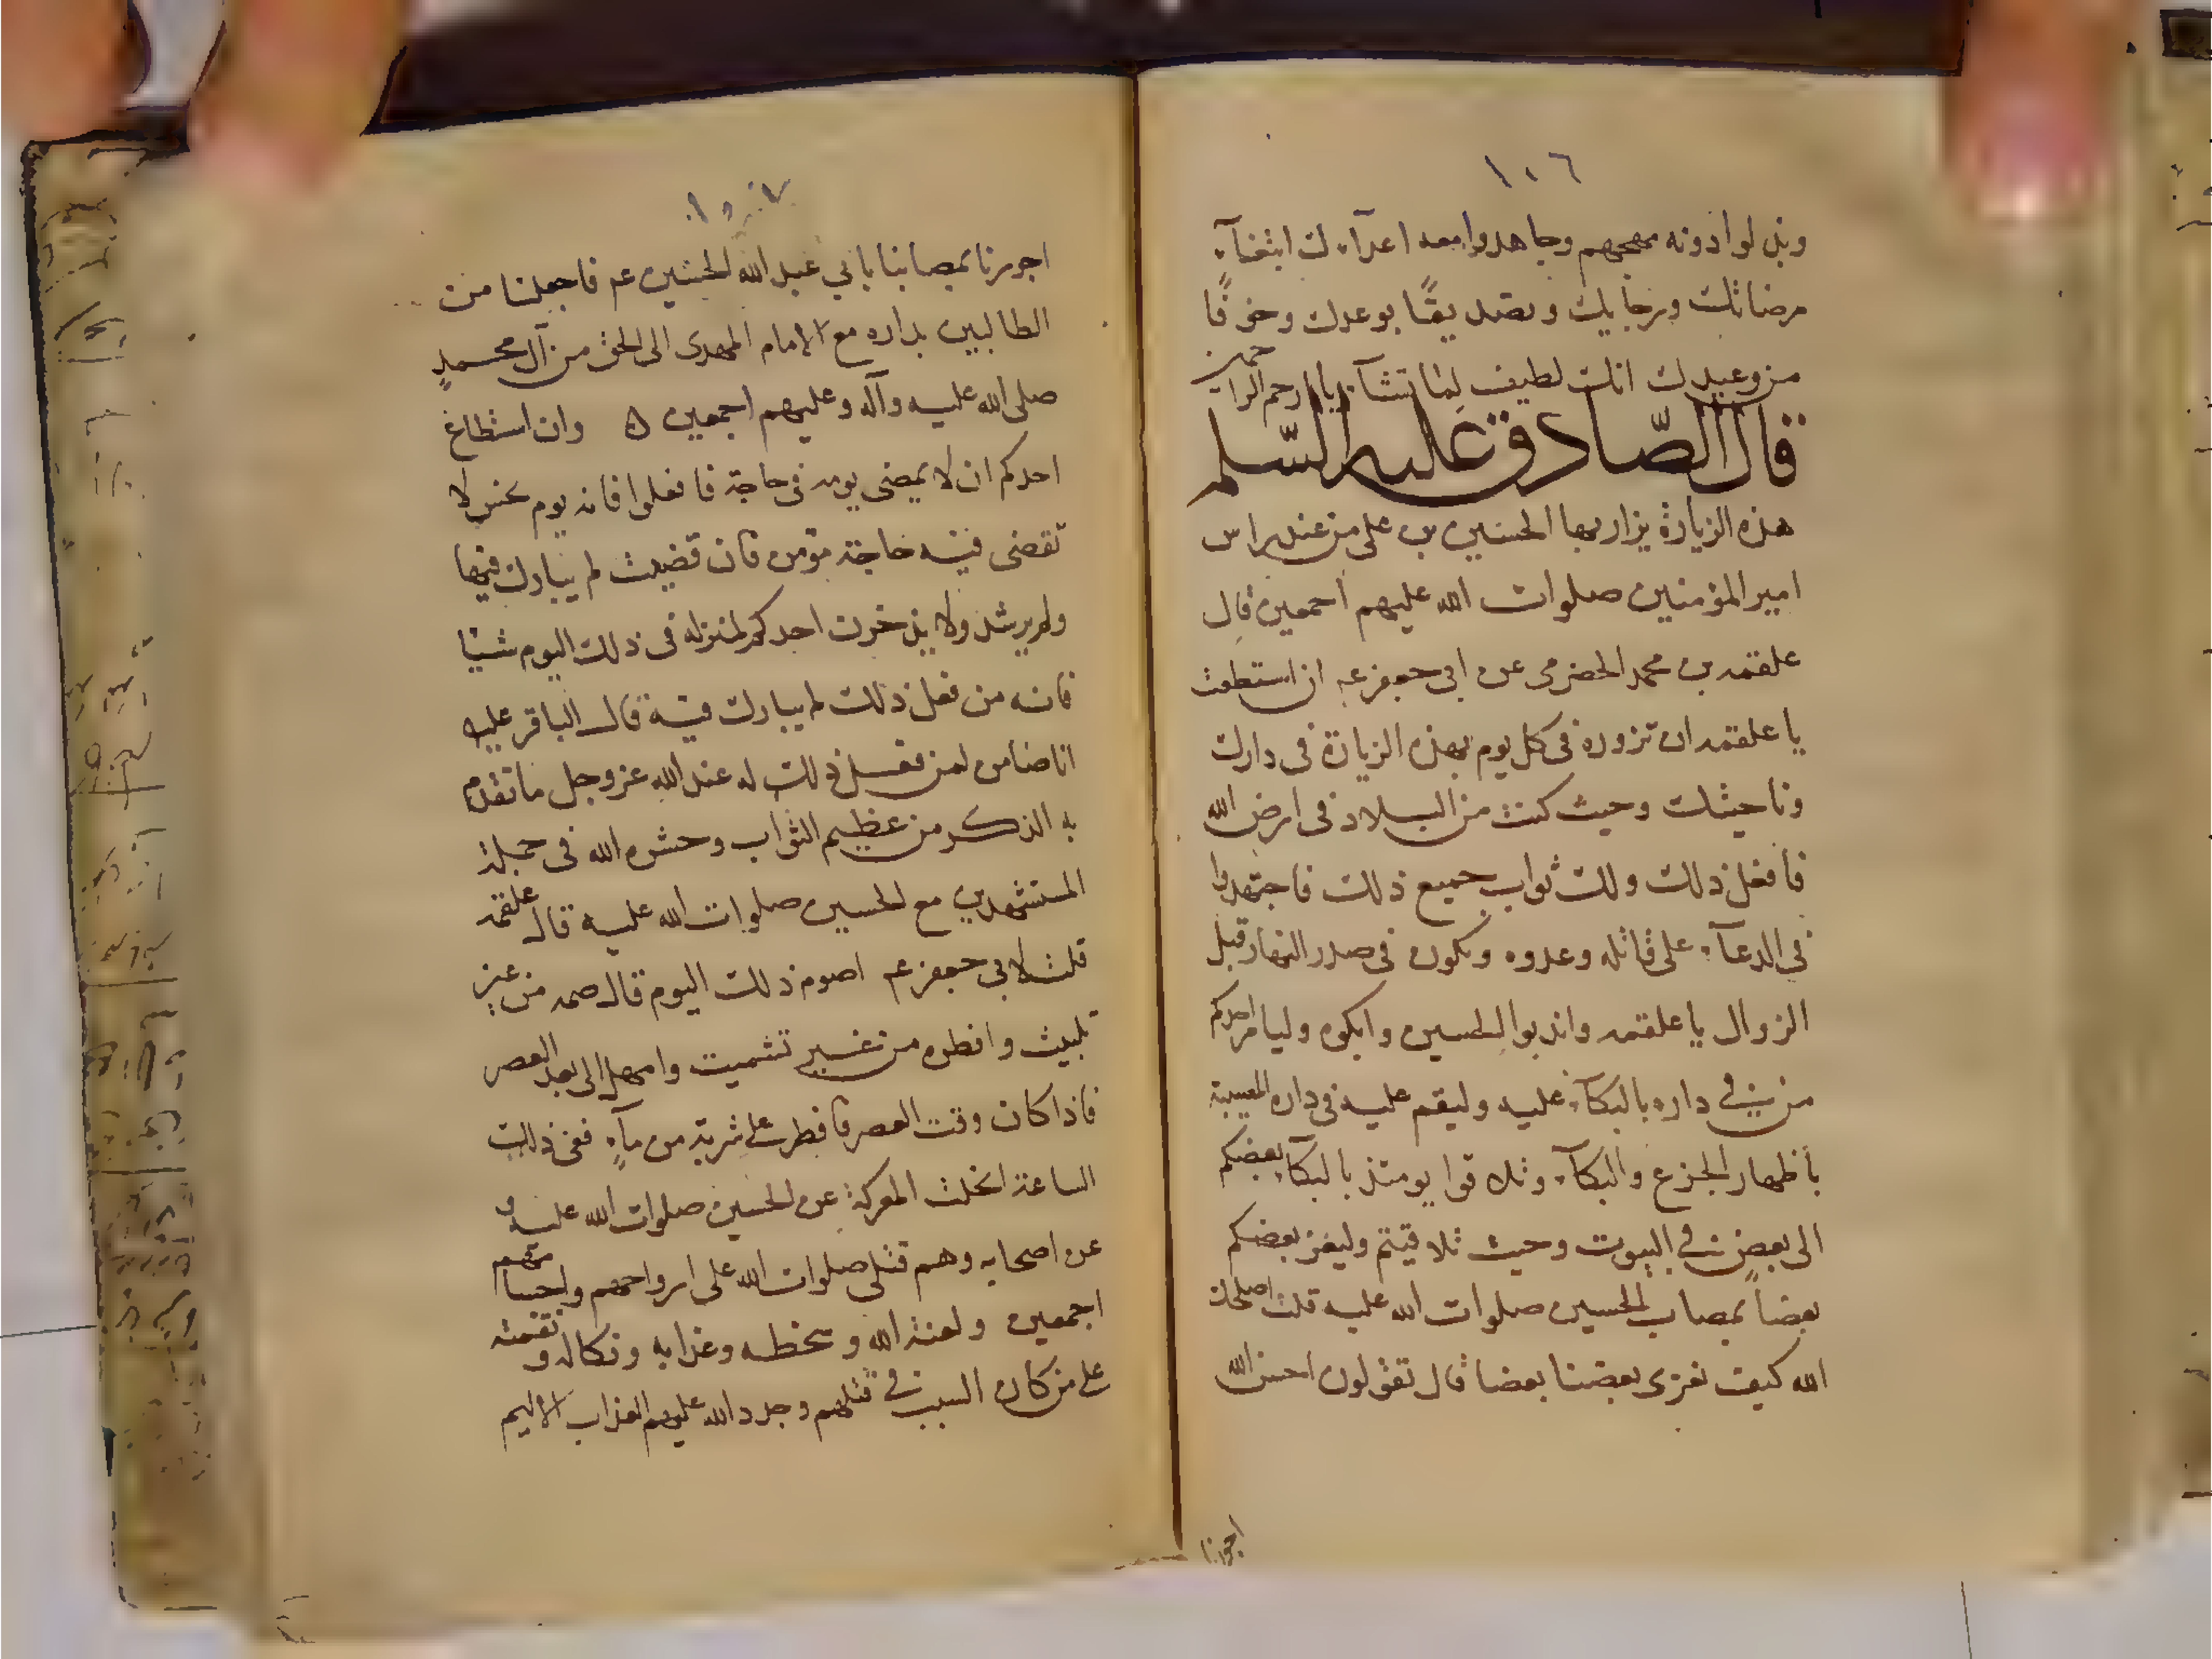 ١٠٦
وبذلوا دونه مهجهم وجاهدوا معه اعدآءك ابتغآء
مرضاتك ورجايك وتصديقًا بوعدك وخوفًا
من وعيدك انك لطيف لما تشآء يا ارحم الراحمين
قال الصّادق عليه السّلم
هذه الزيارة يزار بها الحسين بن على من عند راس
امير المؤمنين صلوات الله عليهم اجمعين قال
علقمه بن محمد الحضرمى عن ابى جعفر عم ان استطعت
يا علقمه ان تزوره فى كل يوم بهذه الزيارة فى دارك
وناحيتك وحيث كنت من البلاد فى ارض الله
فافعل ذلك ولك ثواب جميع ذلك فاجتهدوا
فى الدعآء على قاتله وعدوه ويكون فى صدر النهار قبل
الزوال يا علقمه واندبوا الحسين وابكوه وليامر احدكم
من فى داره بالبكآء عليه وليقم عليه فى داره المصيبة
باظهار الجزع والبكآء وتلاقوا يومئذ بالبكآء بعضكم
الى بعض فى البيوت وحيث تلاقيتم وليعز بعضكم
بعضاً بمصاب الحسين صلوات الله عليه قلت اصلحك
الله كيف نعزى بعضنا بعضا قال تقولون احسن الله
اجورنا
١٠٧
اجورنا بمصابنا بابي عبد الله الحسين عم فاجعلنا من
الطالبين بداره مع الامام المهدى الى الحق من آل محمدٍ
صلى الله عليه وآله وعليهم اجمعين ه وان استطاع
احدكم ان لا يمضى يومه فى حاجة فافعلوا فانه يوم نحس لا
تقضى فيه حاجة مؤمن فان قضيت لم يبارك فيها
ولم يرشد ولا يذخرن احدكم لمنزله فى ذلك اليوم شيئا
فانه من فعل ذلك لم يبارك فيه قال الباقر عليه
انا ضامن لمن فعل ذلك له عند الله عز وجل ما تقدم
به الذكر من عظيم الثواب وحشره الله فى جملة
المستشهدين مع الحسين صلوات الله عليه قال علقمه
قلت لابى جعفر عم اصوم ذلك اليوم قال صمه من غير
تبييت وافطره من غير تشميت وامهل الى بعد العصر
فاذا كان وقت العصر فافطر على شربة من مآءٍ ففى ذلك
الساعة انجلت المعركة عن الحسين صلوات الله عليه و
عن اصحابه وهم قتلى صلوات الله على ارواحهم واجسامهم
اجمعين ولعنة الله وسخطه وعذابه ونكاله ونقمته
على من كان السبب فى قتلهم وجدد الله عليهم العذاب الاليم